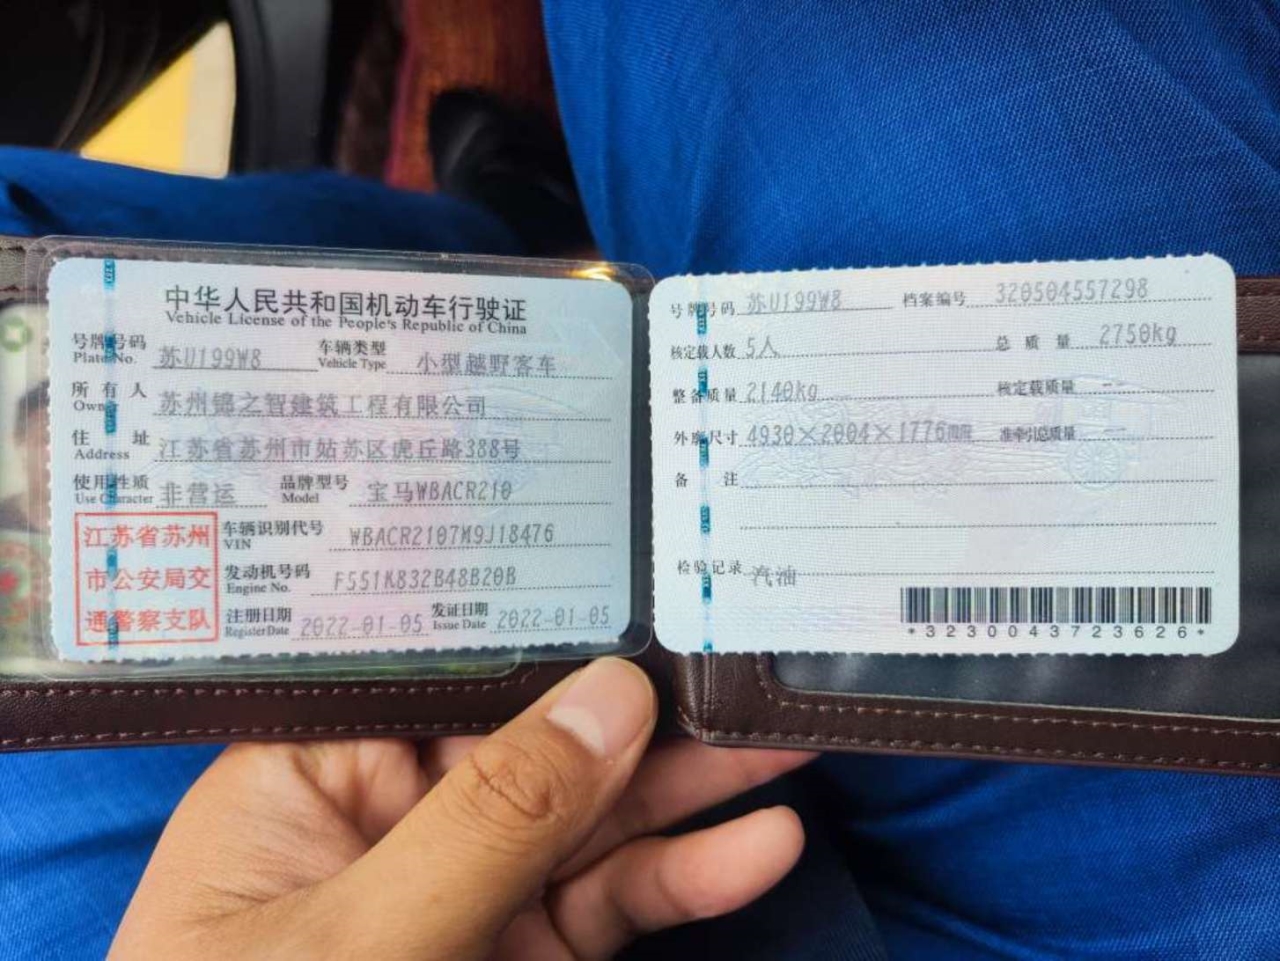 中华人民共和国机动车行驶证
Vehicle License of the People's Republic of China
号牌号码 苏U199W8 车辆类型 小型越野客车
Plate No. Vehicle Type
所有人 苏州锦之智建筑工程有限公司
Owner
住址 江苏省苏州市姑苏区虎丘路388号
Address
使用性质 非营运 品牌型号 宝马WBACR210
Use Character Model
江苏省苏州
市公安局交
通警察支队
车辆识别代号 WBACR2107M9J18476
VIN
发动机号码 F551K832B48B20B
Engine No.
注册日期 2022-01-05 发证日期 2022-01-05
Register Date Issue Date
号牌号码 苏U199W8 档案编号 320504557298
核定载人数 5人 总质量 2750kg
整备质量 2140kg 核定载质量 --
外廓尺寸 4930×2004×1776mm 准牵引总质量 --
备注
检验记录 汽油
*3230043723626*